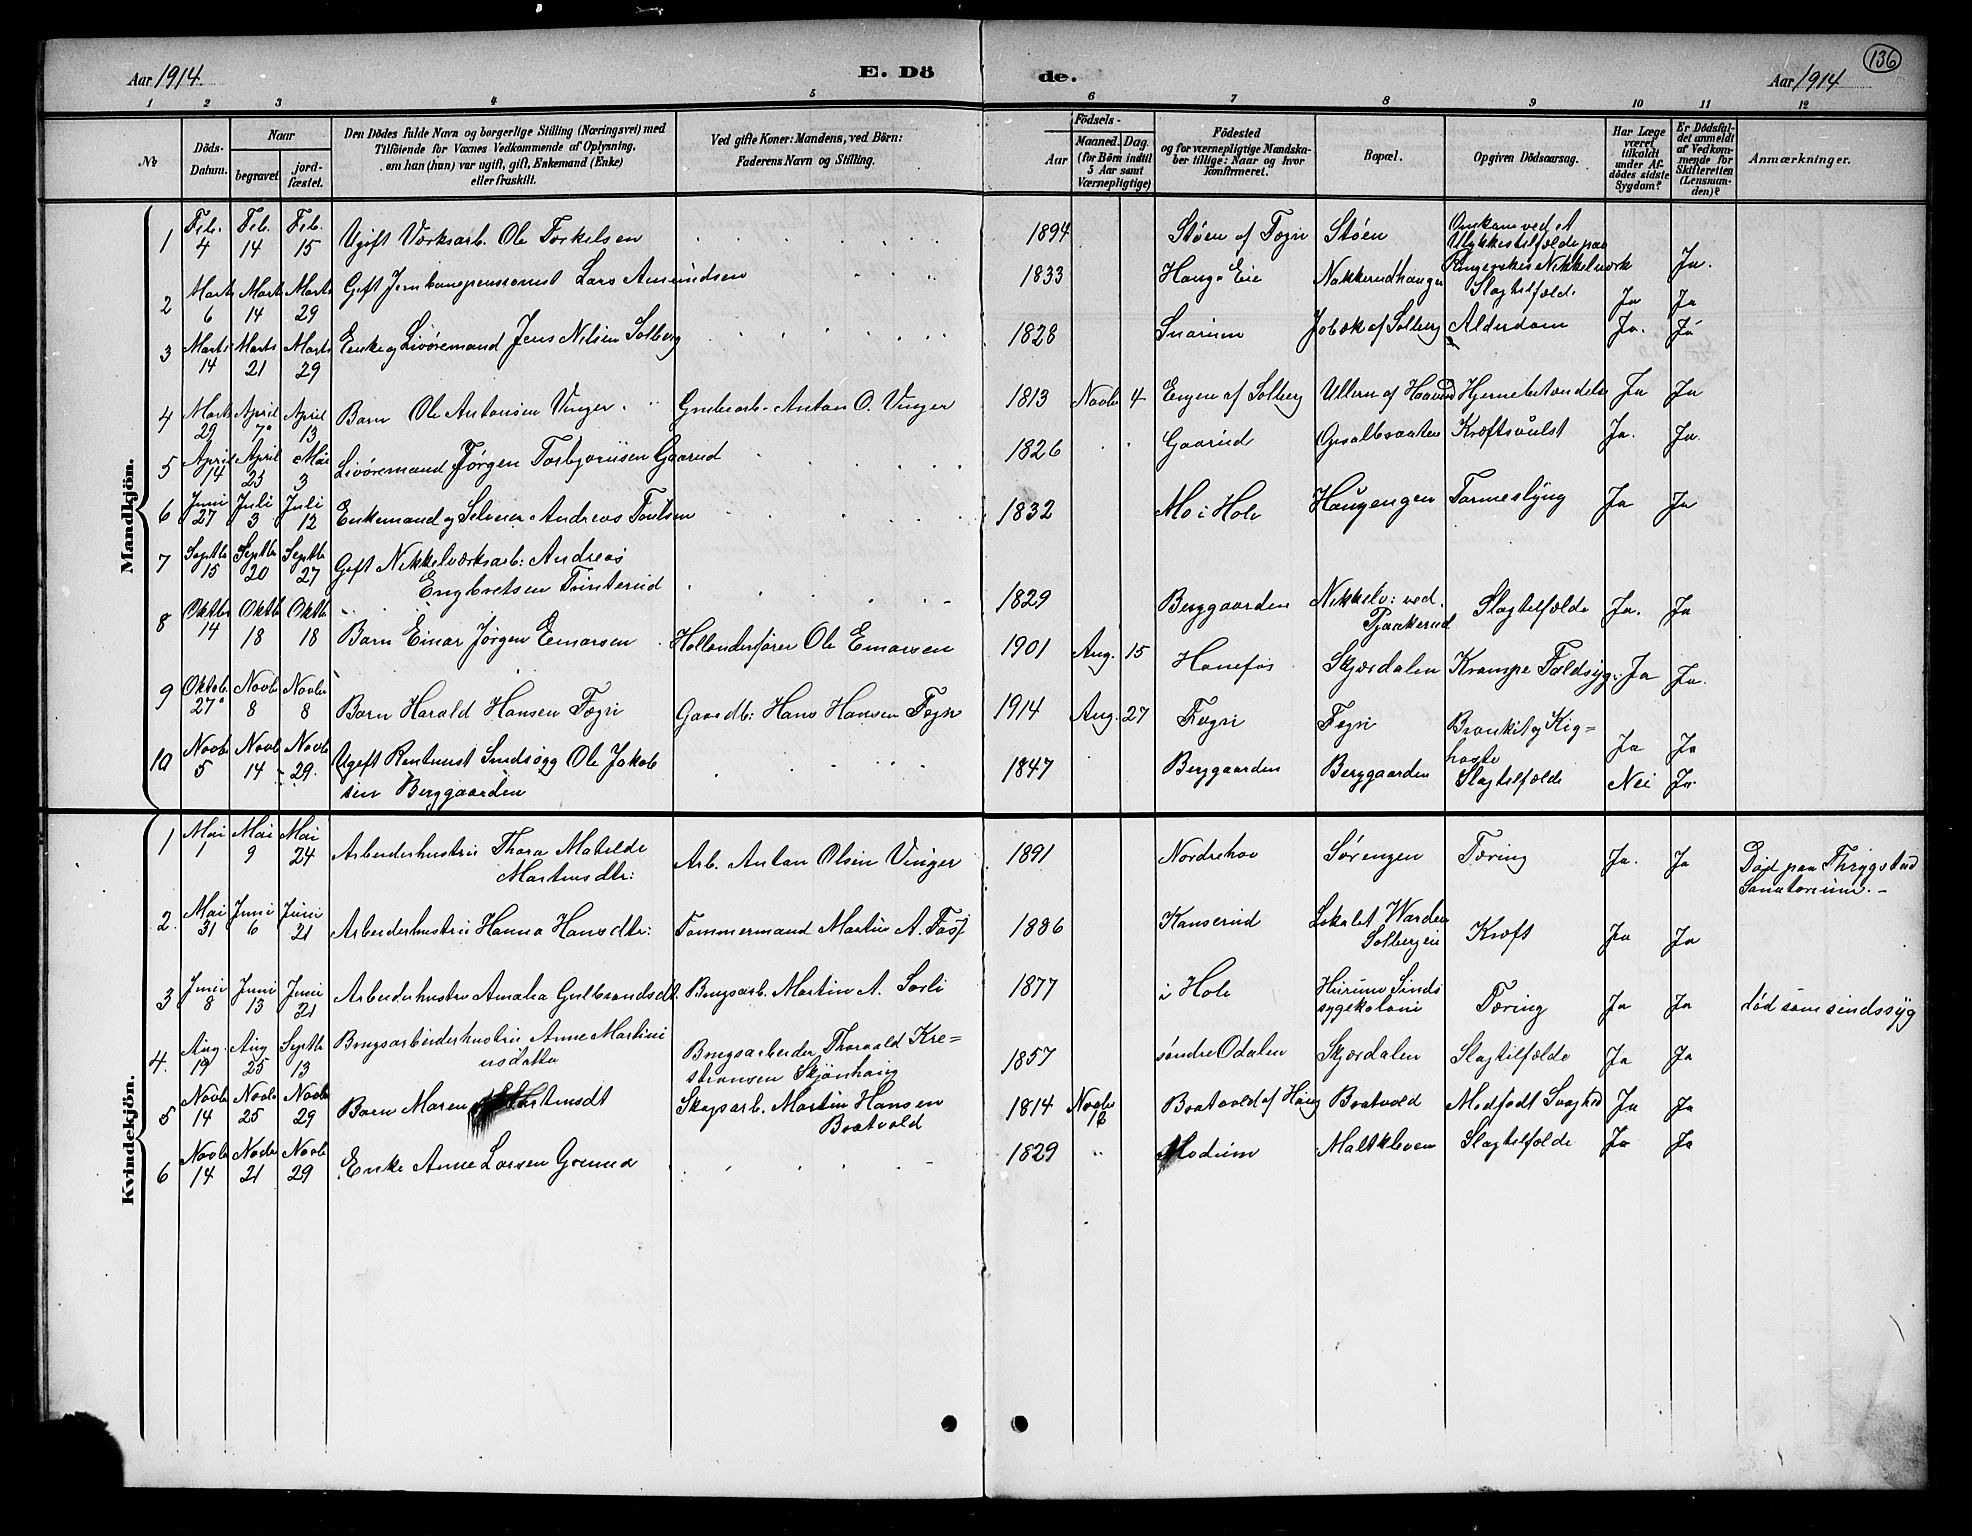 136
Aar 1914. E. Dö de. Aar 1914
1 2 3 4 5 6 7 8 9 10 11 12
No
Döds-Datum.
Naar
begravet
jord-fæstet.
Den Dödes fulde Navn og borgerlige Stilling (Næringsvei) med
Tilföiende for Voxnes Vedkommende af Oplysning,
om han (hun) var ugift, gift, Enkemand (Enke)
eller fraskilt.
Ved gifte Koner: Mandens, ved Börn:
Faderens Navn og Stilling.
Födsels-
Aar
Maaned. Dag.
(for Börn indtil
5 Aar samt
Værnepligtige)
Födested
og for værnepligtige Mandska-
ber tillige: Naar og hvor
konfirmeret.
Bopæl.
Opgiven Dödsaarsag.
Har Læge
været
tilkaldt
under Af-
dödes sidste
Sygdom?
Er Dödsfal-
det anmeldt
af Vedkom-
mende for
Skifteretten
(Lensman-
den)?
Anmærkninger.
Mandkjön.
1 Feb. 4 Feb. 14 Feb. 15 Ugift Værksarb. Ole Torkelsen 1894 Støen af Fægri Støen Omkom ved et
Ulykkestilfælde paa
Ringerikes Nikkelværk Ja.
2 Marts 6 Marts 14 Marts 29 Gift Jernbanepensionist Lars Amundsen 1833 Haugs Eie Nakkerudhaugen Slagtilfælde Ja Ja
3 Marts 14 Marts 21 Marts 29 Enke og Livøremand Jens Nilsen Solberg 1828 Snarum Jobæk af Solberg Alderdom Ja. Ja
4 Marts 29 April 7 April 13 Barn Ole Antonsen Vinger Grubearb. Anton O. Vinger 1813 Novbr 4 Engen af Solberg Ullern af Hjernebetændelse Ja Ja
5 April 14 April 23 Mai 3 Livøremand Jørgen Torbjørnsen Gaarud 1826 Gaarud Opsalbraaten Kræftsvulst Ja. Ja.
6 Juni 27 Juli 3 Juli 12 Enkemand og Selveier Andreas Poulsen 1832 Mo i Hole Haugengen Tarmeslyng Ja Ja
7 Septbr 15 Septbr 20 Septbr 27 Gift Nikkelværksarb: Andreas
Engbretsen Tvinterud 1829 Berggaarden Nikkelv: ved
Tjankerud Slagtilfælde Ja. Ja
8 Oktbr 14 Oktbr 18 Oktbr 18 Barn Einar Jørgen Einarsen Hollænderfører Ole Einarsen 1901 Aug. 15 Hønefos Skjærdalen Krampe Faldsyge Ja Ja.
9 Oktob 27 Novbr 8 Novbr 8 Barn Harald Hansen Fægri Gaardb: Hans Hansen Fægri 1914 Aug. 27 Fægri Fægri Bronkit og Kig=
hoste Ja Ja
10 Novbr 5 Novbr 14 Novbr 29. Ugift Rentenist Sindssyg Ole Jakob
sen Berggaarden 1847 Berggaarden Berggaarden Slagtilfælde Nei Ja.
Kvindekjön.
1 Mai 1 Mai 9 Mai 24 Arbeiderhustru Thora Matelde
Martinsdtr: Arb. Anton Olsen Vinger 1891 Nordrehov Sørengen Tæring Ja. Ja Død paa Thrygstad
Sanatorium.-
2. Mai 31 Juni 6 Juni 21 Arbeiderhustru Hanna Hansdtr: Tømmermand Martin A. Fosf 1886 Kanserud Lokalet Warden
Solbergeie Kræft Ja Ja
3 Juni 8 Juni 13 Juni 21 Arbeiderhustru Amalia Gulbrandsdt. Brugsarb. Martin A. Sørli 1877 i Hole Hurum Sinds
sygekoloni Tæring Ja Ja død som sindssyg
4. Aug. 19 Aug 25 Septbr 13 Brugsarbeiderhustru Anne Martini
usdatter Brugsarbeider Thorvald Kre=
stiansen Skjønhaug 1857 søndre Odalen Skjærdalen Slagtilfælde Ja Ja
5 Novbr 14 Novbr 25 Novbr 29 Barn Maren Martinsdt Skogsarb. Martin Hansen
Bratvold 1814 Novbr 12 Bratvold af Haug Bratvold Medfødt Svaghed Ja Ja
6 Novbr 14 Novbr 21 Novbr 29 Enke Anne Larsen Grønna 1829 Modum Maltkleven Slagtilfælde Ja Ja